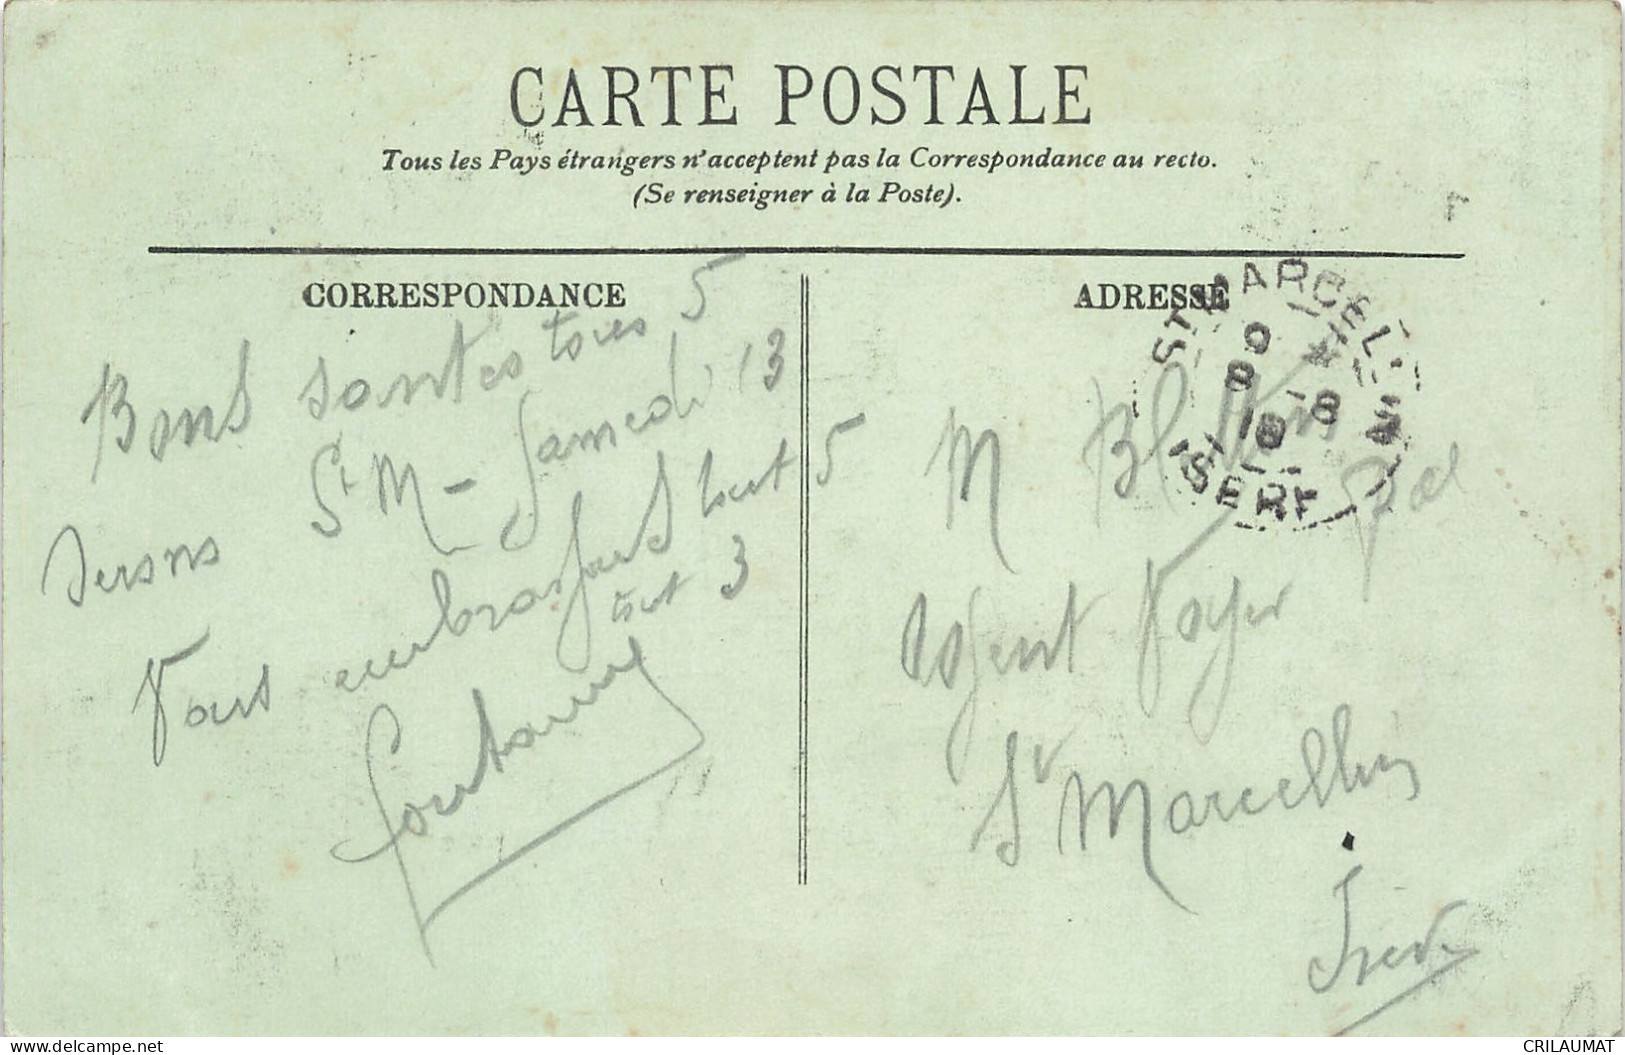 CARTE POSTALE
Tous les Pays étrangers n'acceptent pas la Correspondance au recto.
(Se renseigner à la Poste).
CORRESPONDANCE
Bons santés tous 5
Serons St M - Samedi 13
Vous embrassons tout 5
tout 3
ADRESSE
ST MARCELLIN
ISERE
M
Agent Voyer Pal
St Marcellin
Isère
CRILAUMAT